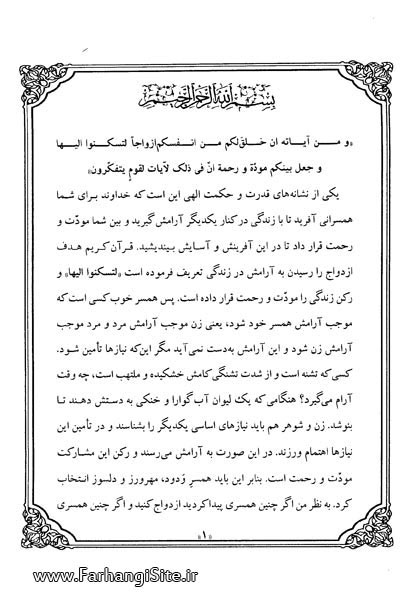 بسم الله الرحمن الرحیم
«و من آیاته ان خلق لکم من انفسکم ازواجاً لتسکنوا الیها
و جعل بینکم مودّة و رحمة انّ فی ذلک لآیات لقومٍ یتفکّرون»
یکی از نشانه‌های قدرت و حکمت الهی این است که خداوند برای شما
همسرانی آفرید تا با زندگی در کنار یکدیگر آرامش گیرید و بین شما مودّت و
رحمت قرار داد تا در این آفرینش و آسایش بیندیشید. قرآن کریم هدف
ازدواج را رسیدن به آرامش در زندگی تعریف فرموده است «لتسکنوا الیها» و
رکن زندگی را مودّت و رحمت قرار داده است. پس همسر خوب کسی است که
موجب آرامش همسر خود شود، یعنی زن موجب آرامش مرد و مرد موجب
آرامش زن شود و این آرامش به‌دست نمی‌آید مگر این‌که نیازها تأمین شود.
کسی که تشنه است و از شدت تشنگی کامش خشکیده و ملتهب است، چه وقت
آرام می‌گیرد؟ هنگامی که یک لیوان آب گوارا و خنکی به دستش دهند تا
بنوشد. زن و شوهر هم باید نیازهای اساسی یکدیگر را بشناسند و در تأمین این
نیازها اهتمام ورزند. در این صورت به آرامش می‌رسند و رکن این مشارکت
مودّت و رحمت است. بنابر این باید همسرِ وَدود، مهرورز و دلسوز انتخاب
کرد. به نظر من اگر چنین همسری پیدا کردید ازدواج کنید و اگر چنین همسری
«۱»
www.FarhangiSite.ir